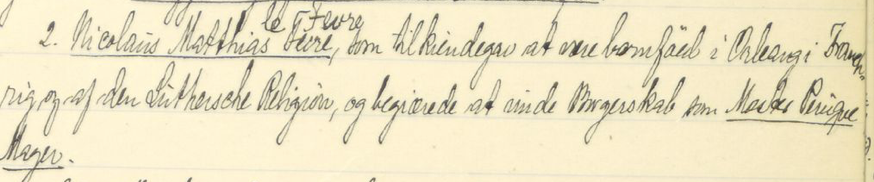 le Fevre
2. Nicolaus Matthias Fevre, som tilkiendegav at være barnfød i Orleang i Franck-
rig, og af den Luthersche Religion, og begiærede at vinde Borgerskab som Mester Peruqve
Mager.